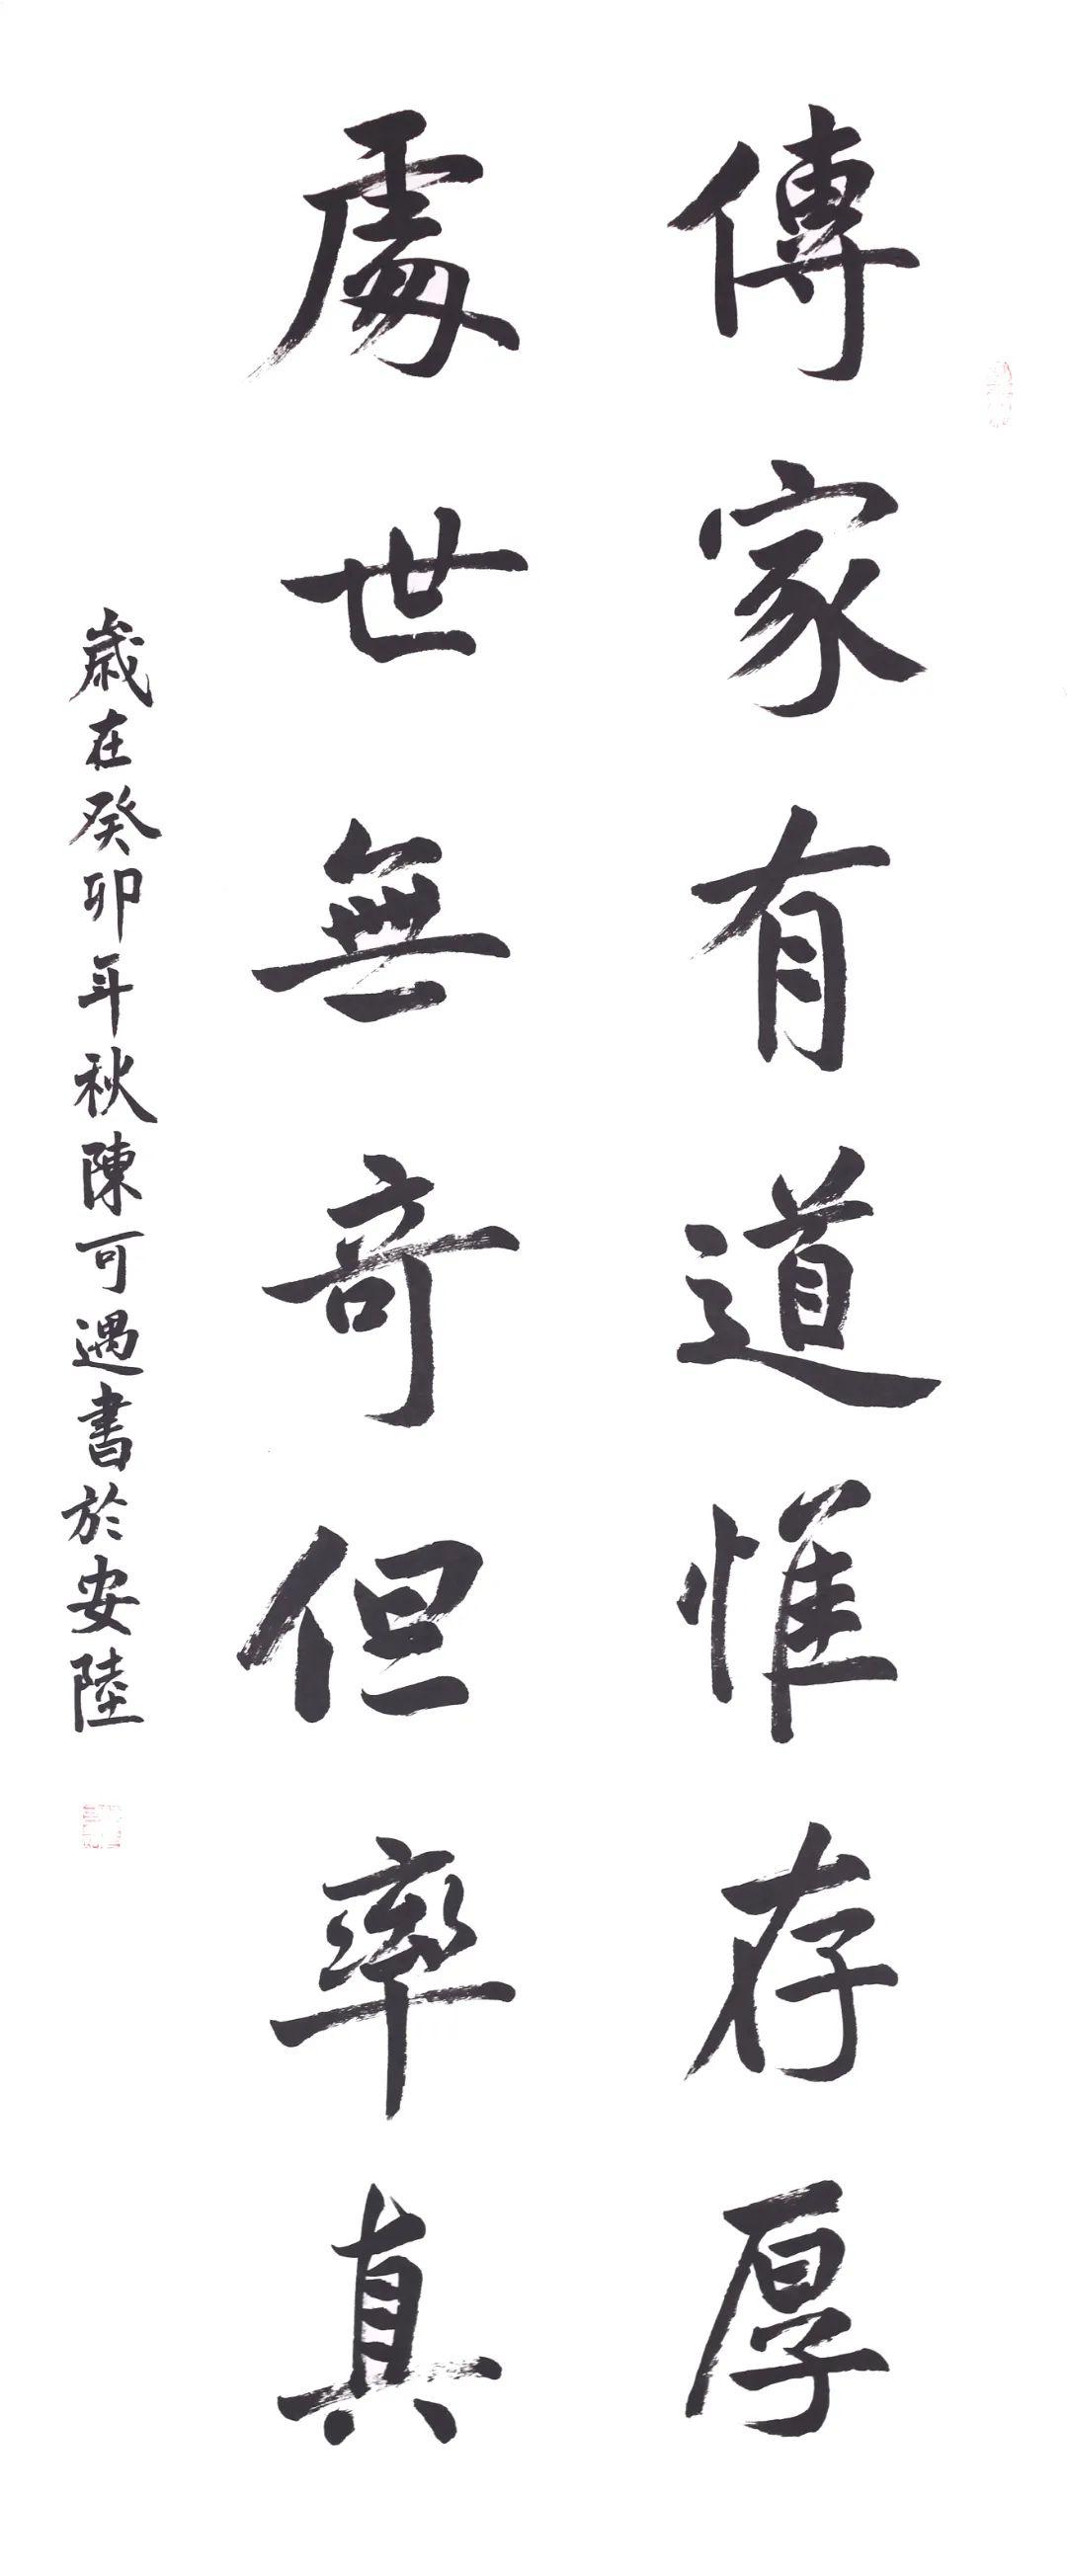 傳家有道惟存厚
處世無奇但率真
歲在癸卯年秋陳可遇書於安陸